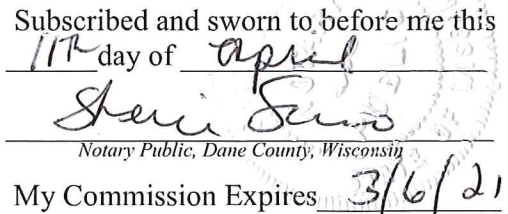 Subscribed and sworn to before me this
11th day of April
Notary Public, Dane County, Wisconsin
My Commission Expires 3/6/21